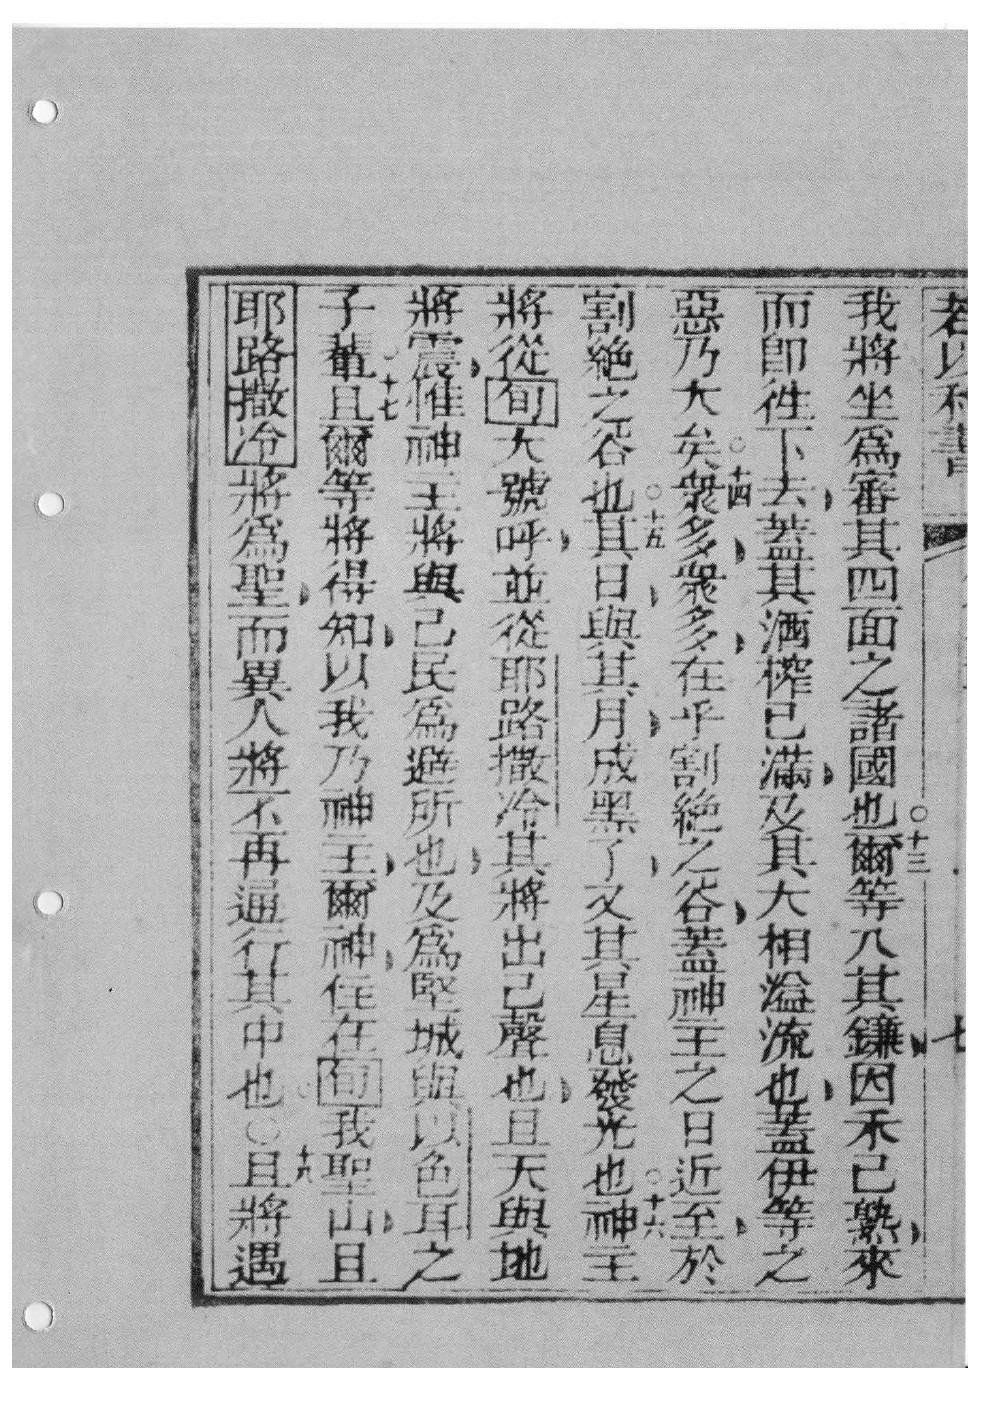 若以利書 七
我將坐爲審其四面之諸國也○十三爾等入其鐮因禾已熟來
而卽徃下去蓋其酒榨已滿及其大相溢流也蓋伊等之
惡乃大矣○十四衆多衆多在乎割絕之谷蓋神主之日近至於
割絕之谷也○十五其日與其月成黑了又其星息發光也○十六神主
將從旬大號呼並從耶路撒冷其將出己聲也且天與地
將震惟神主將與己民爲避所也及爲堅城與以色耳之
子輩○十七且爾等將得知以我乃神主爾神住在旬我聖山且
耶路撒冷將爲聖而異人將不再通行其中也○○十八且將遇